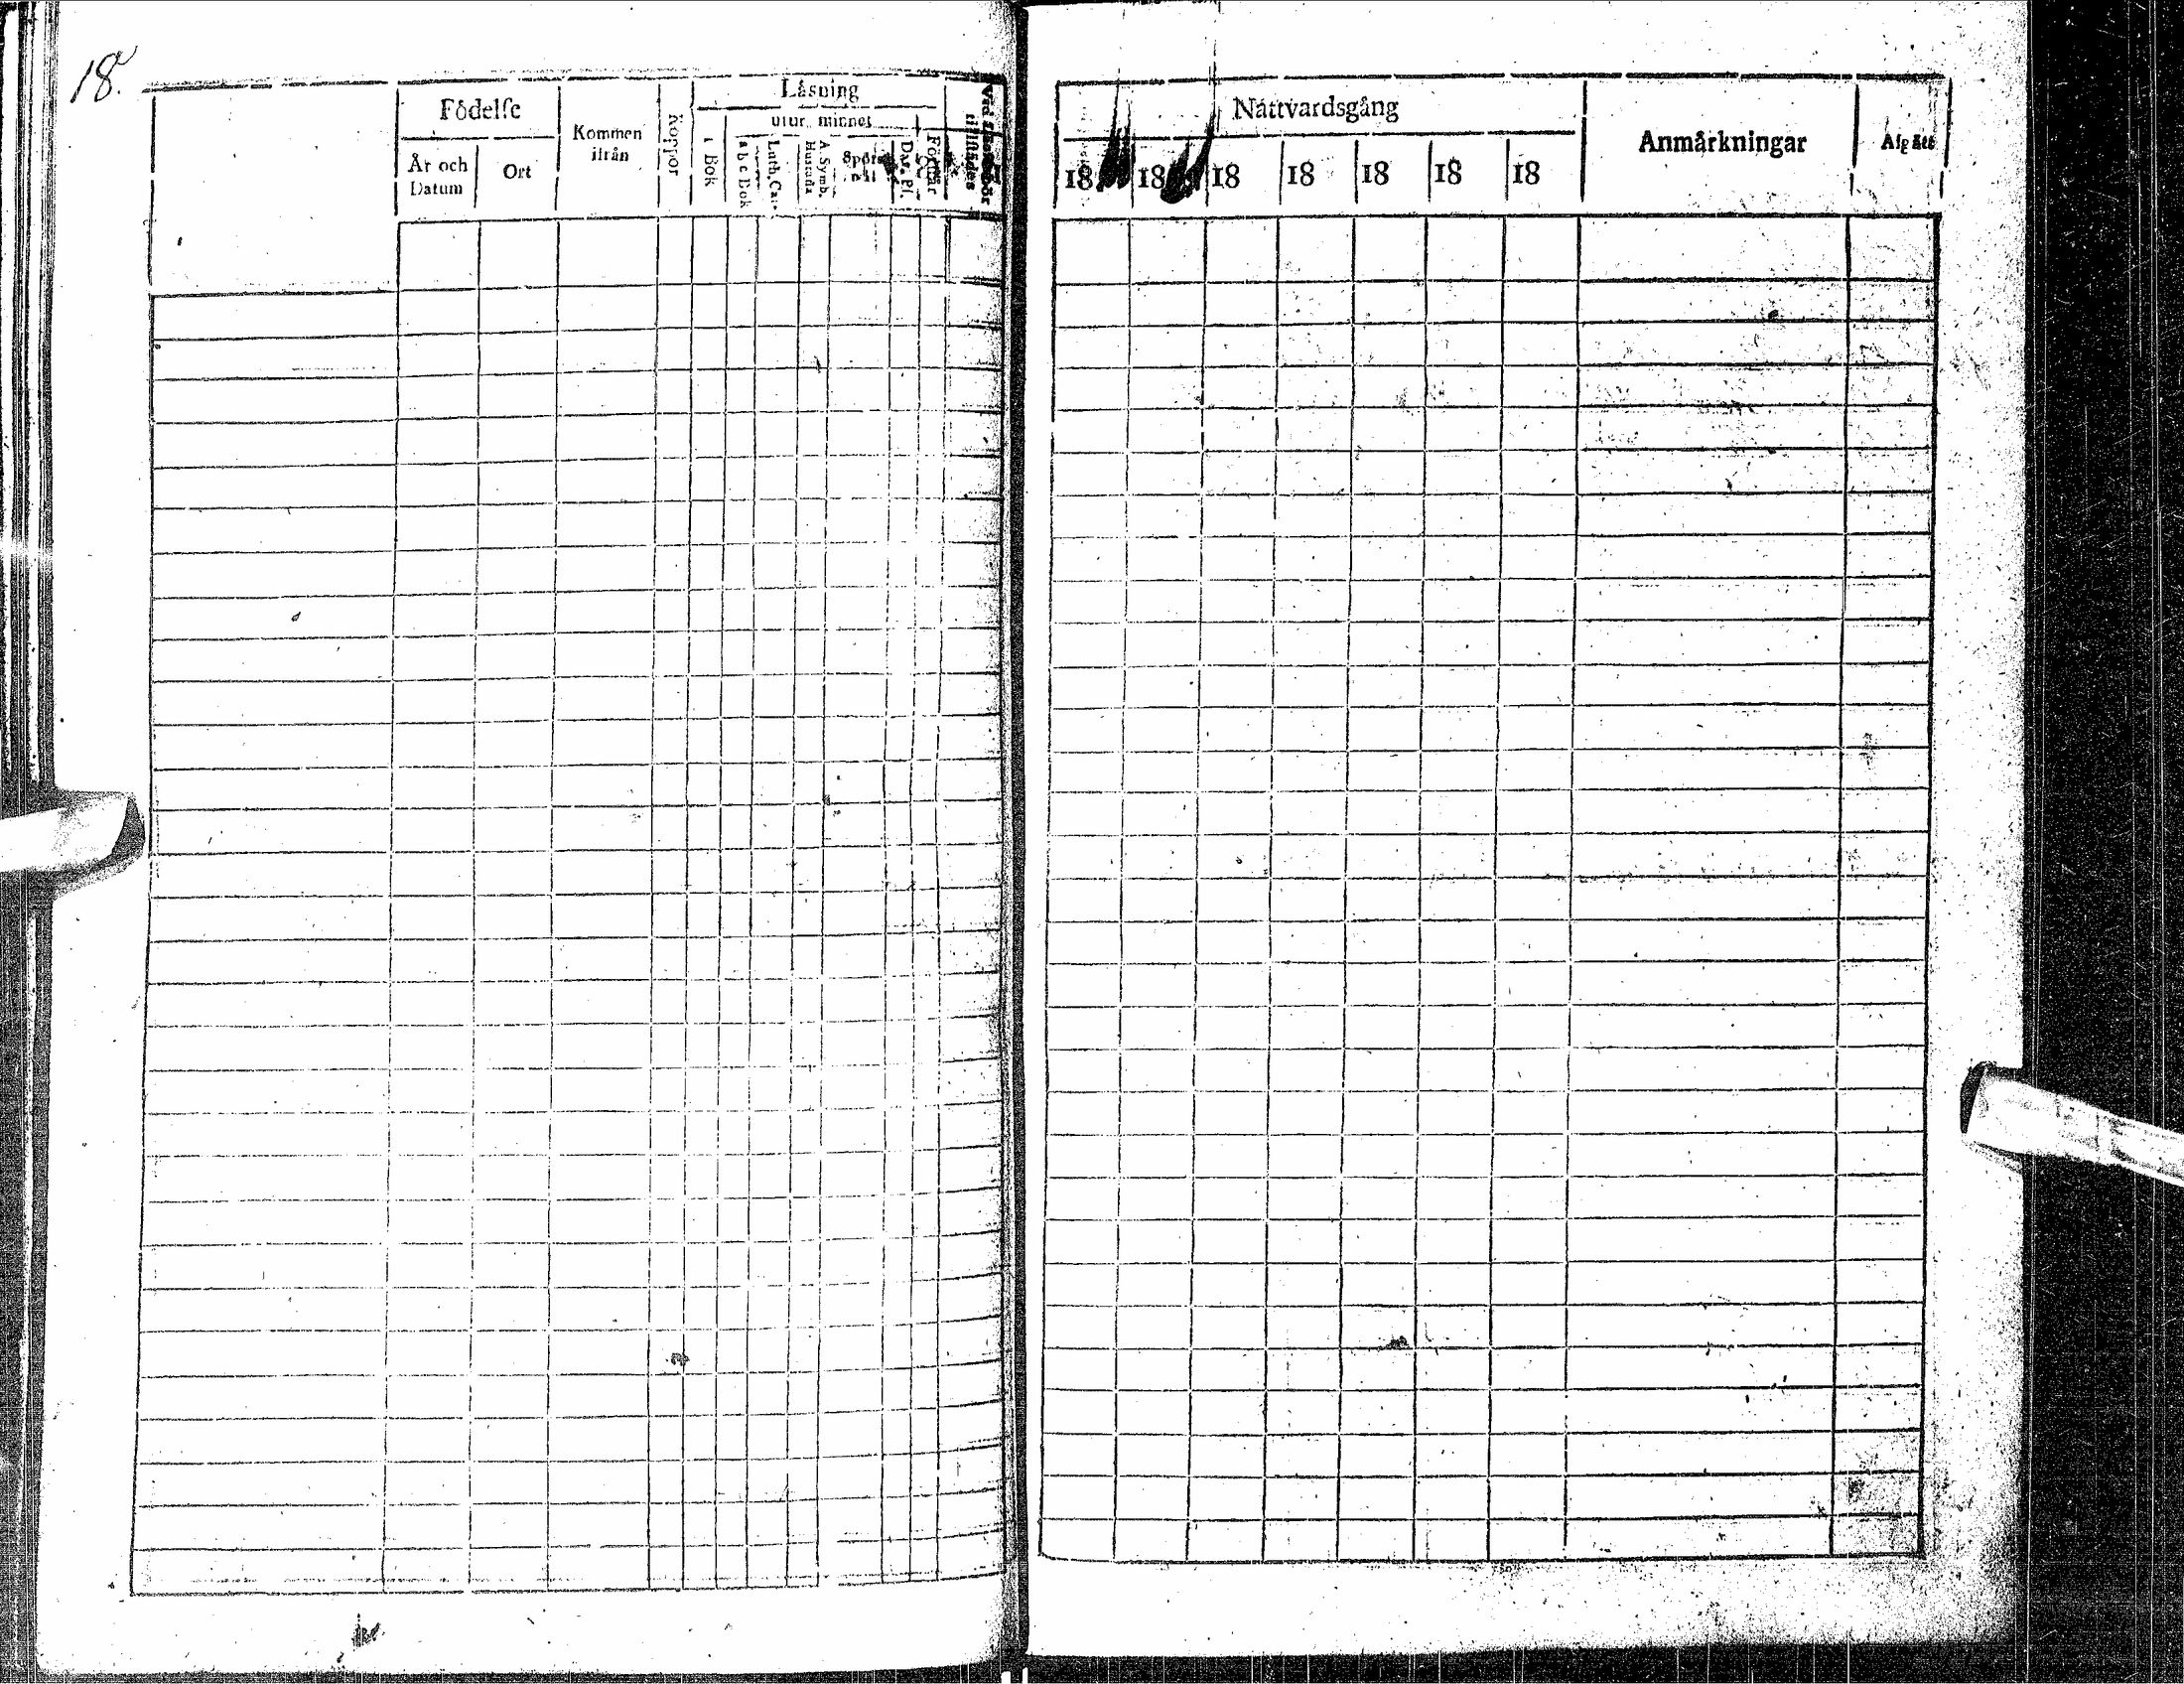 18.
Födelse
År och Datum
Ort
Kommen ifrån
Koppor
Läsning
i Bok
utur minnet
a b c Bok
Luth. Cat.
Hustafla
A. Symb.
Spörsmål
Dav. Ps.
Förstår
Vid
tillstädes
Nåttvardsgång
18 18 18 18 18 18 18
Anmårkningar
Afgått